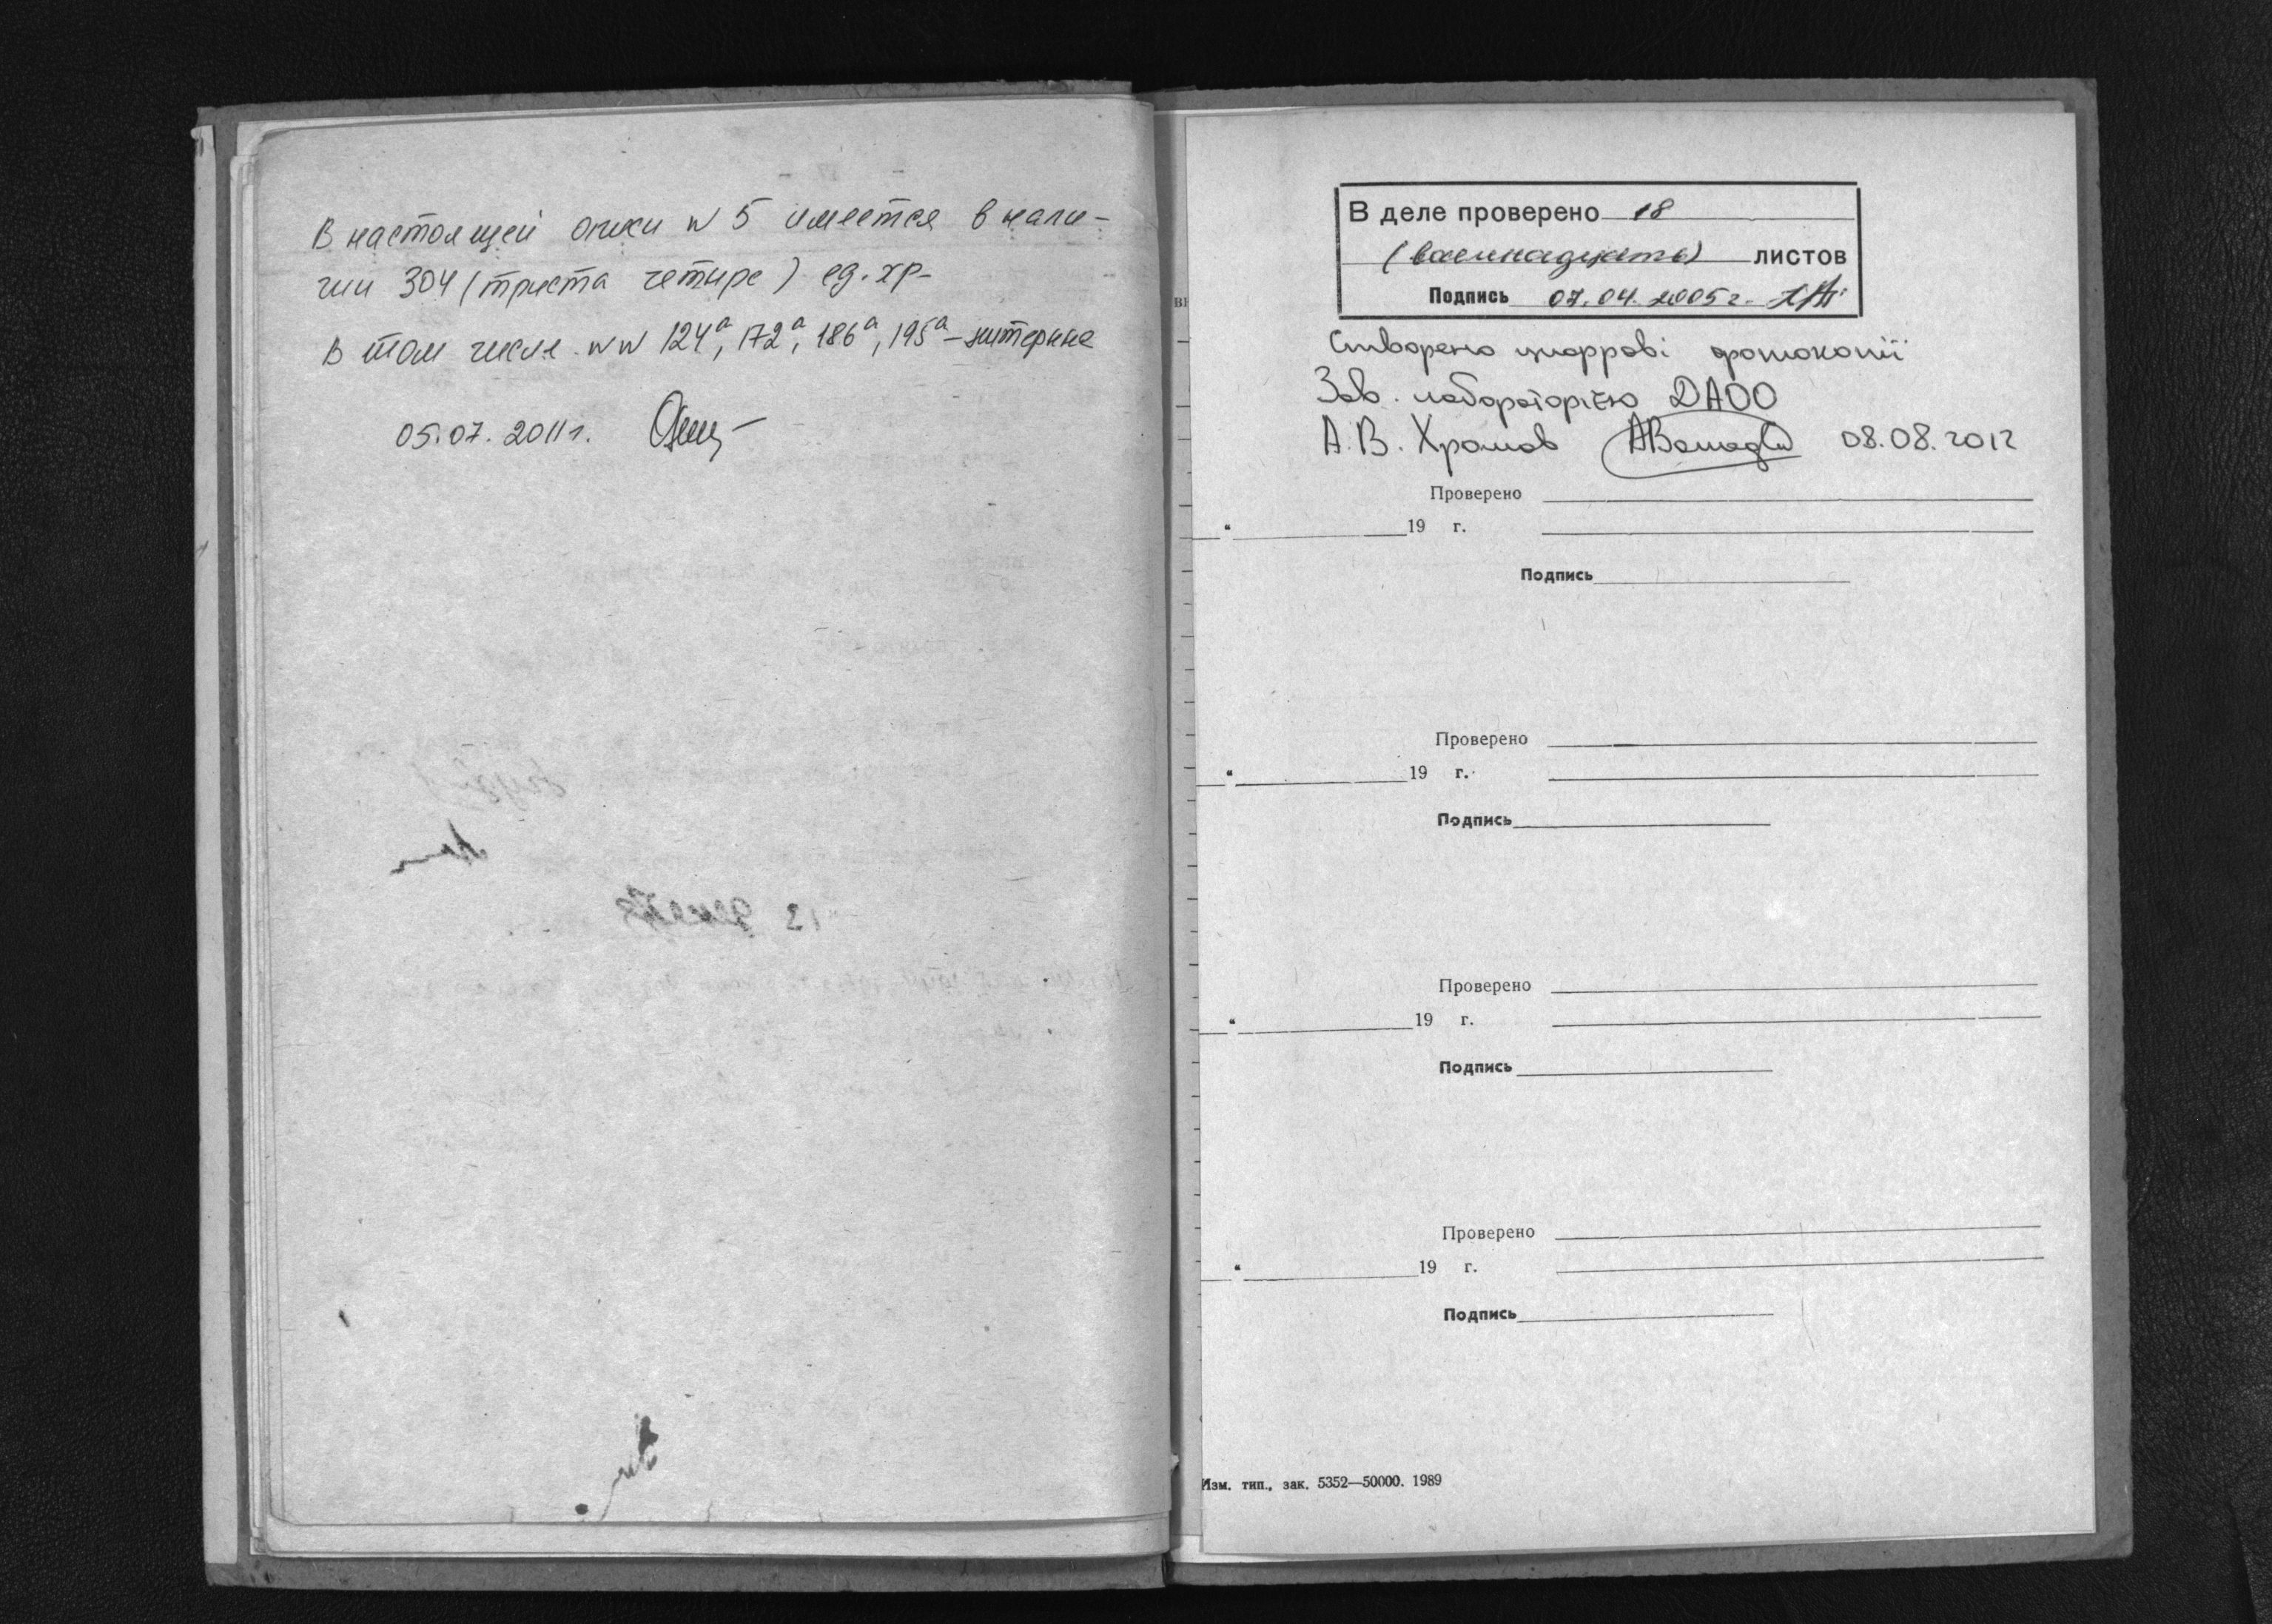 В настоящей описи N 5 имеется в нали-
чии 304 (триста четыре) ед. хр.
В том числе NN 124а, 172а, 186а, 195а - литерные
05.07.2011г.
В деле проверено 18
(восемнадцать) листов
Подпись 07.04.2005г.
Створено цифрові фотокопії
Зав. лабораторією ДАОО
А.В. Хромов 08.08.2012
Проверено
" 19 г.
Подпись
Проверено
" 19 г.
Подпись
Проверено
" 19 г.
Подпись
Проверено
" 19 г.
Подпись
Изм. тип., зак. 5352—50000. 1989